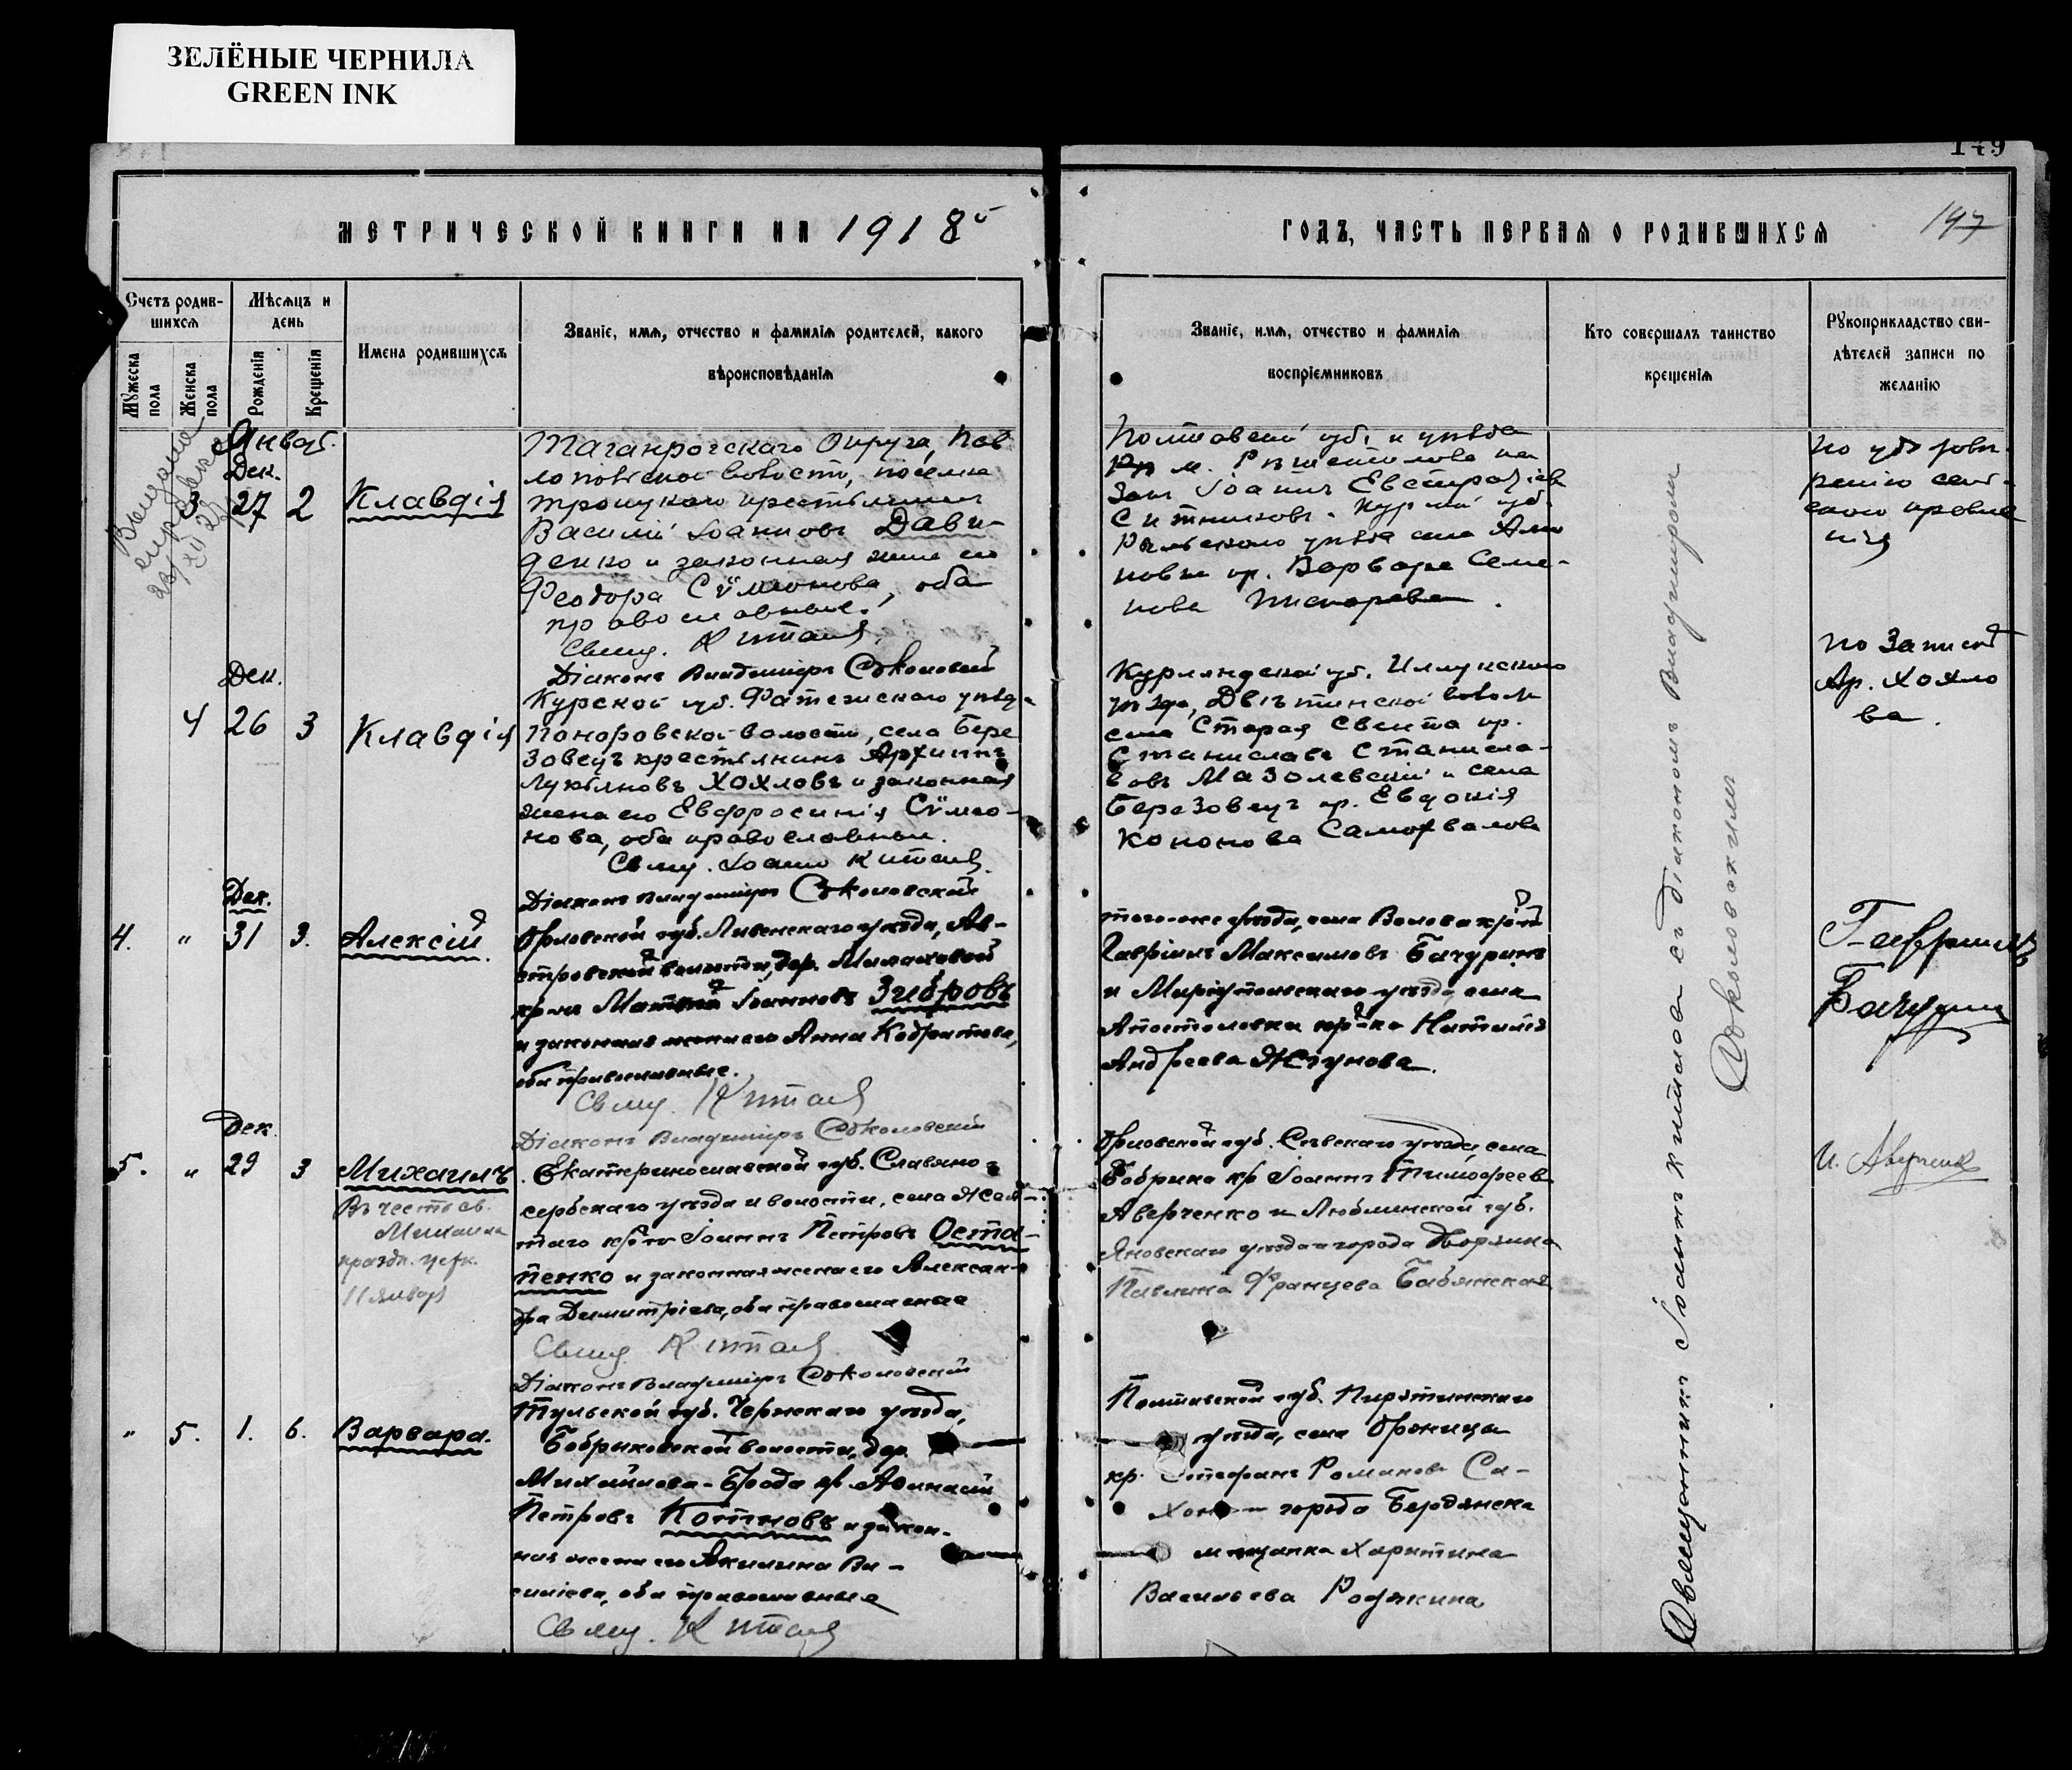 ЗЕЛЁНЫЕ ЧЕРНИЛА
GREEN INK
149
МЕТРИЧЕСКОЙ КНИГИ НА 1918й
ГОДЪ, ЧАСТЬ ПЕРВАЯ О РОДИВШИХСЯ
197
Счетъ родив-
шихся
Мѣсяцъ и
день
Мужеска
пола
Женска
пола
Рожденія
Крещенія
Имена родившихся
Званіе, имя, отчество и фамилія родителей, какого
вѣроисповѣданія
Званіе, имя, отчество и фамилія
воспріемниковъ
Кто совершалъ таинство
крещенія
Рукоприкладство сви-
дѣтелей записи по
желанію
Выдана
справка
Январь
Дек.
3 27 2 Клавдія
Таганрогскаго Округа, Пав
волости, поселка
Троицкаго крестьянинъ
Василій Іоанновъ Дави-
денко и законная жена его
Феодора Сѵмеонова, оба
православные.
Свящ. Китаевъ
Діаконъ Владиміръ Соколовскій
Полтавской губ. и уѣзда
м. Рѣшетиловка
Іоаннъ Евстратіев
Ситниковъ. Курской губ.
Рыльскаго уѣзда села
кр. Варвара Семе-
нова Писарева.
Дек.
4 26 3 Клавдія
Курской губ. Фатежскаго уѣзд.
Понаровской волости, села Бере
зовецъ крестьянинъ Архипъ
Лукьяновъ Хохловъ и законная
жена его Евфросинія Сѵмео-
нова, оба православные.
Свящ. Іоаннъ Китаевъ
Діаконъ Владиміръ Соколовскій
Курляндской губ. Иллукскаго
уѣзда, волости
села Старая Свента кр.
Станиславъ Станисла-
вовъ Мазолевскій и села
Березовецъ кр. Евдокія
Кононова Самохвалова
По
Ар. Хохло
ва.
Дек.
4. " 31 3. Алексій.
Орловской губ. Ливенскаго уѣзда,
волости, дер.
кр-нъ Матвій Іоанновъ Зибровъ
и законная жена его Анна Кодратова,
оба православные.
Свящ. Китаевъ
Діаконъ Владиміръ Соколовскій
того-же уѣзда, села Волова кр-нъ
Гавріилъ Максимовъ Бачуринъ
и Маріупольскаго уѣзда, села
Апостоловка кр-ка Наталія
Андреева Жгунова.
Гавриилъ
Бачурин
Дек.
5. " 29 3 Михаилъ
Въ честь св.
Михаила
праздн. церк.
11 января
Екатеринославской губ. Славяно-
сербскаго уѣзда и волости, села Жел-
таго кр-нъ Іоаннъ Петровъ Оста-
пенко и законная жена его Алексан-
дра Димитріева, оба православные
Свящ. Китаевъ
Діаконъ Владиміръ Соколовскій
Орловской губ. Сѣвскаго уѣзда, села
Бобрика кр Іоаннъ Тимофеев
Аверченко и Люблинской губ.
Яновскаго уѣзда и города Дворянка
Павлина Францева Бабянская
И. Аверченко
" 5. 1. 6. Варвара.
Тульской губ. Чернскаго уѣзда,
Бобриковской волости, дер.
Михайлова-Брода кр. Афанасій
Петровъ Котяновъ и закон-
ная жена его Акилина Ва-
силіева, оба православные
Свящ. Китаевъ
Полтавской губ. Пирятинскаго
уѣзда, села Оржицы
кр. Стефанъ Романов Са-
города Бердянска
мѣщанка Харитина
Васильева Родькина
Священникъ Іоаннъ Китаевъ съ діакономъ Владиміромъ
Соколовскимъ